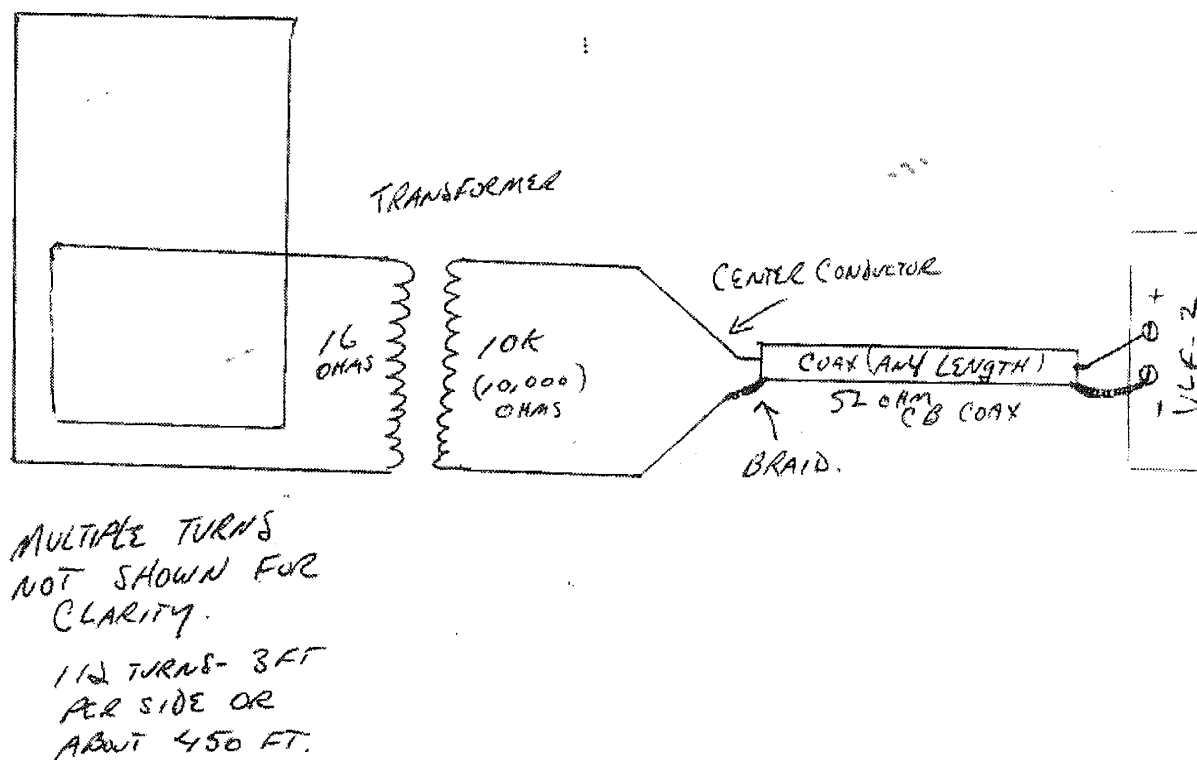 TRANSFORMER
CENTER CONDUCTOR
16
OHMS
10K
(10,000)
OHMS
COAX (ANY LENGTH)
52 OHM
CB COAX
BRAID.
+
-
VLF-2
MULTIPLE TURNS
NOT SHOWN FOR
CLARITY.
112 TURNS - 3 FT
PER SIDE OR
ABOUT 450 FT.